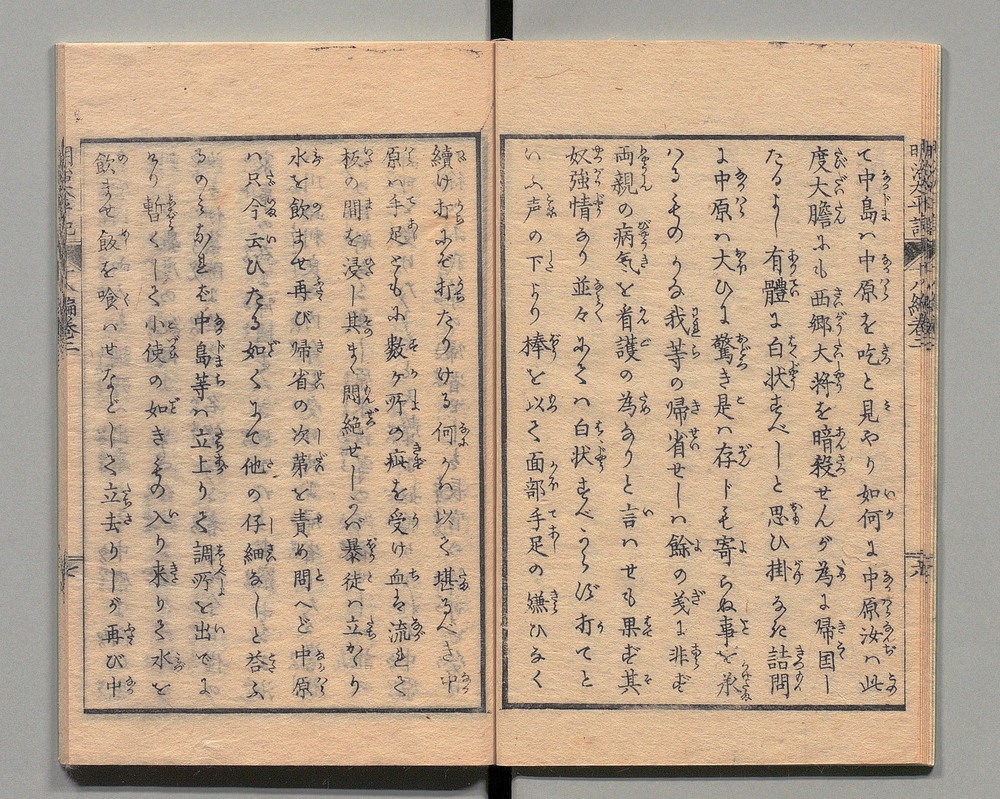 て中島ハ中原を吃と見やり如何に中原汝ハ此
度大膽にも西郷大将を暗殺せんが為に帰国し
たるよし有體に白状すべしと思ひ掛なき詰問
に中原ハ大ひに驚き是ハ存ドも寄らぬ事を承
ハるものかな我等の帰省せしハ餘の義に非ず
両親の病気を看護の為なりと言ハせも果ず其
奴強情なり並々にてハ白状すべからず打てと
いふ声の下より棒を以て面部手足の嫌ひなく
續け打にぞ打たりける何かハ以て堪るべき中
原ハ手足ともに数ヶ所の疵を受け血ハ流れて
板の間を浸し其まゝ悶絶せしかバ暴徒ハ立かゝり
水を飲ませ再び帰省の次第を責め問へど中原
ハ只今云ひたる如くにて他の仔細なしと荅ふ
るのみなれば中島等ハ立上りて調所を出でに
けり暫くして小使の如きもの入り来りて水を
飲ませ飯を喰ハせなどして立去りしが再び中
明治太平記
十八編巻二